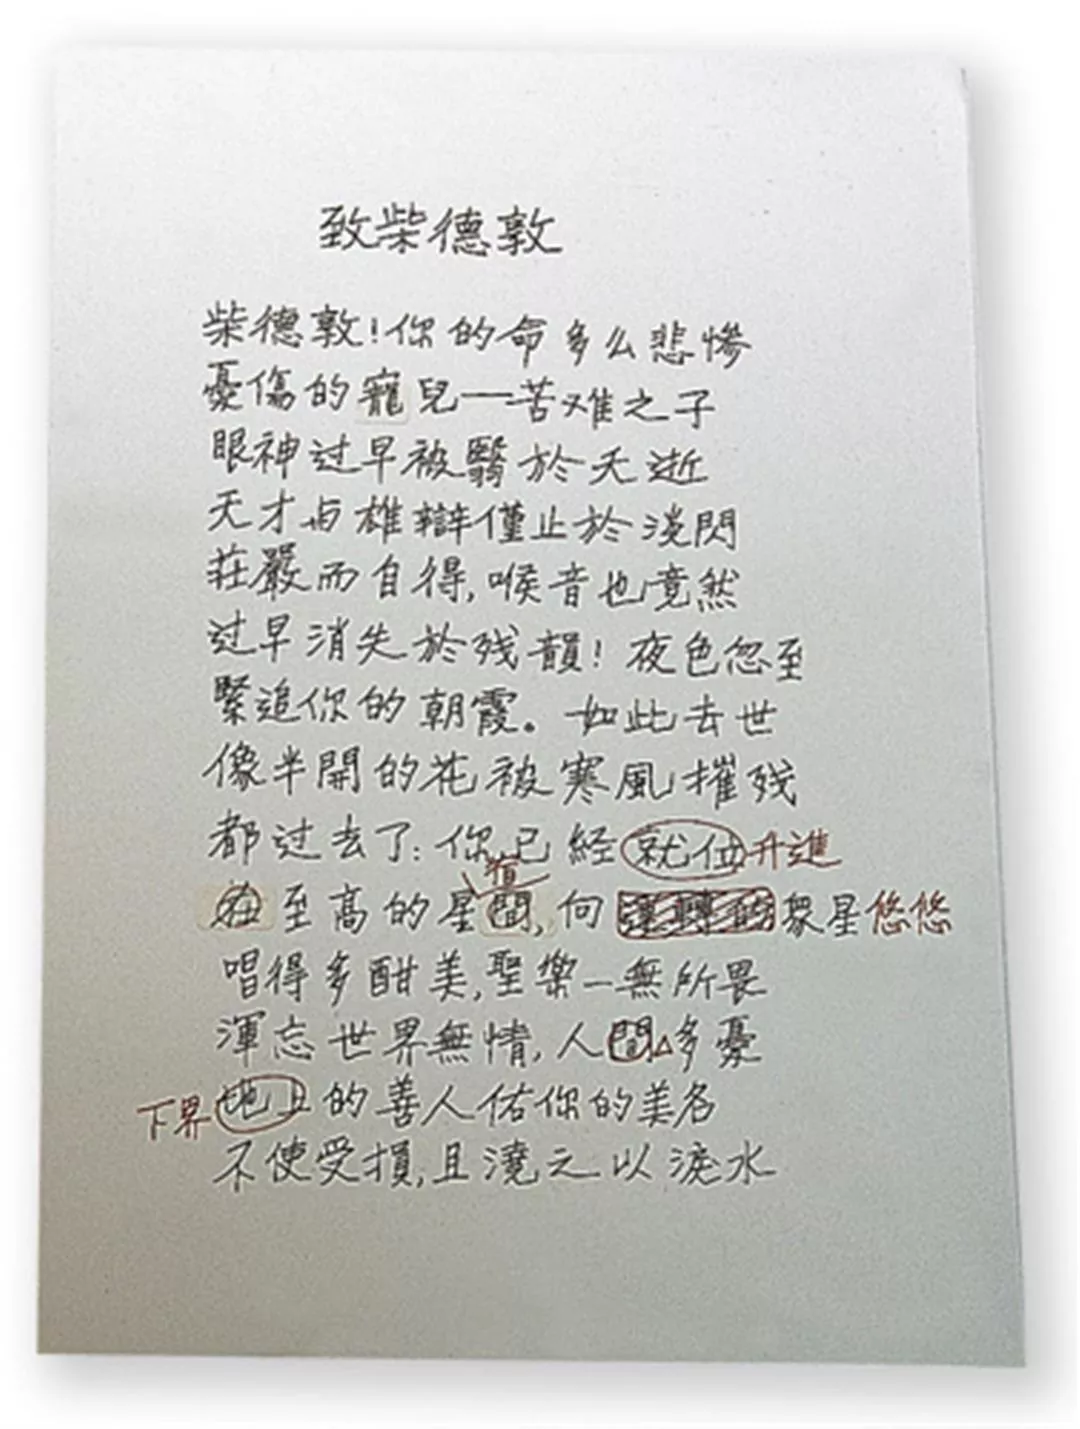 致柴德敦
柴德敦!你的命多么悲慘
憂傷的寵兒——苦难之子
眼神过早被翳於夭逝
天才与雄辯僅止於淡閃
莊嚴而自得,喉音也竟然
过早消失於残韻!夜色忽至
緊追你的朝霞。如此去世
像半開的花被寒風摧残
都过去了:你已經就位升進
宿
在至高的星間,向運轉的衆星悠悠
唱得多酣美,聖樂一無所畏
渾忘世界無情,人間多憂
下界地上的善人佑你的美名
不使受損,且澆之以淚水